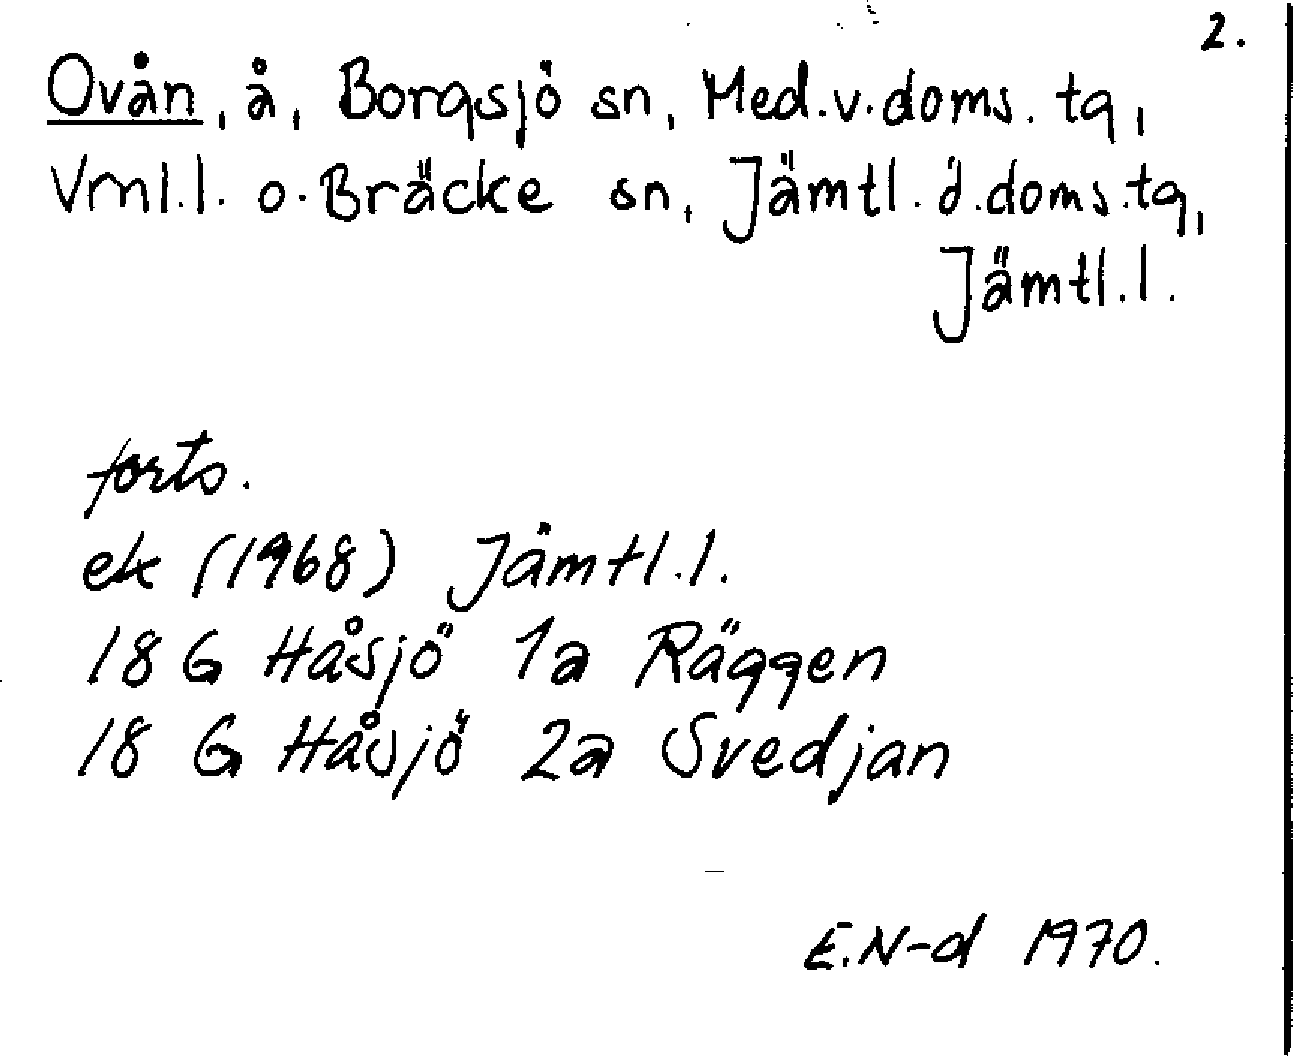 2.
Ovån, å, Borgsjö sn, Med.v.doms.tg,
Vrnl.l. o. Bräcke sn, Jämtl.ö.doms.tg,
Jämtl.l.
forts.
ek (1968) Jämtl.l.
18 G Håsjö 1a Räggen
18 G Håsjö 2a Svedjan
E.N-d 1970.